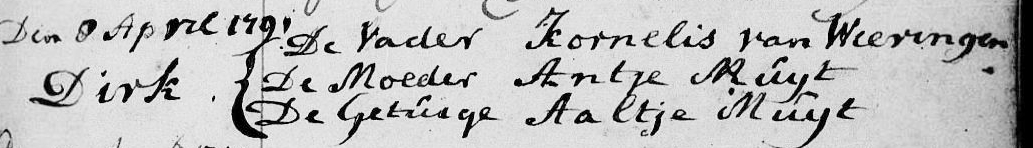 Den 8 April 1791 De Vader Kornelis van Wieringen
Dirk. De Moeder Antje Muÿt
De Getuige Aaltje Muÿt